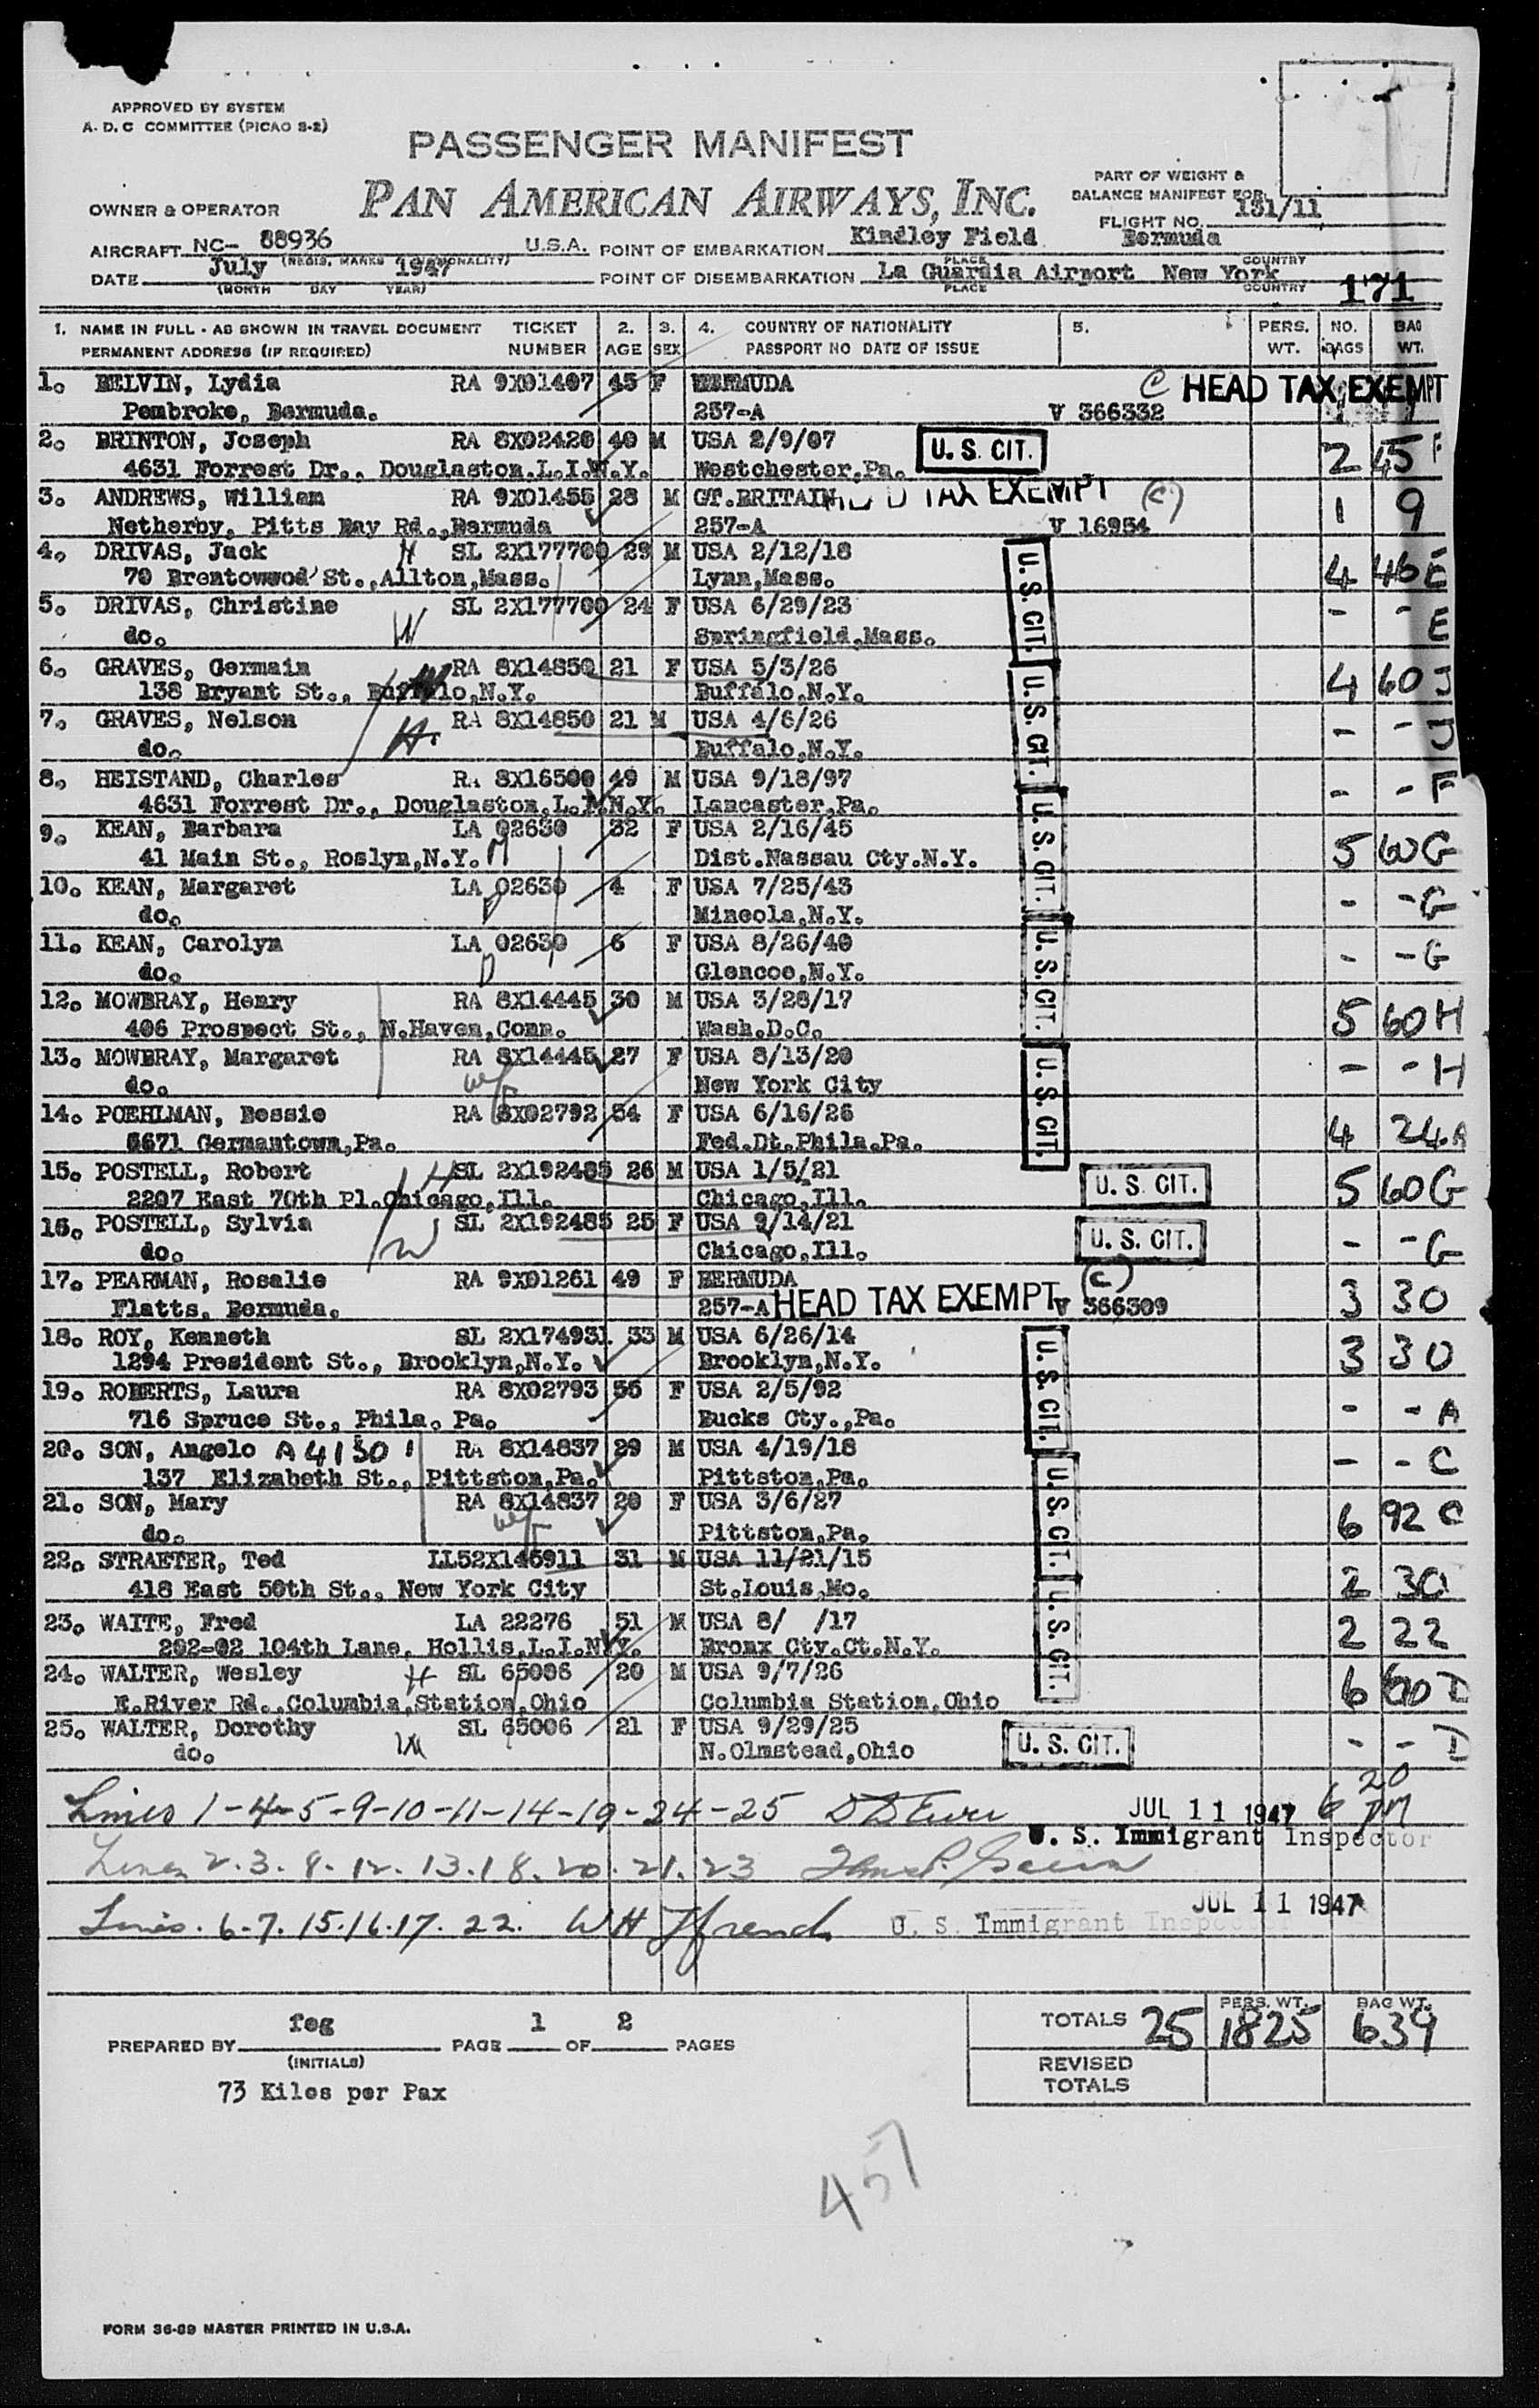 APPROVED BY SYSTEM
A. D. C COMMITTEE (PICAO S-2)
PASSENGER MANIFEST
PAN AMERICAN AIRWAYS, INC.
PART OF WEIGHT &
BALANCE MANIFEST FOR
OWNER & OPERATOR
FLIGHT NO. 131/11
AIRCRAFT NC- 88936 U.S.A. POINT OF EMBARKATION Kindley Field Bermuda
(REGIS. MARKS NATIONALITY) PLACE COUNTRY
DATE July 1947 POINT OF DISEMBARKATION La Guardia Airport New York
(MONTH DAY YEAR) PLACE COUNTRY 171
1. NAME IN FULL - AS SHOWN IN TRAVEL DOCUMENT TICKET 2. 3. 4. COUNTRY OF NATIONALITY 5. PERS. NO. BAG
PERMANENT ADDRESS (IF REQUIRED) NUMBER AGE SEX PASSPORT NO DATE OF ISSUE WT. BAGS WT.
1. BELVIN, Lydia RA 9X01407 45 F BERMUDA C HEAD TAX EXEMPT
Pembroke, Bermuda. 257-A V 366332
2. BRINTON, Joseph RA 8X02420 40 M USA 2/9/07 U. S. CIT. 2 45 F
4631 Forrest Dr., Douglaston.L.I.N.Y. Westchester,Pa.
3. ANDREWS, William RA 9X01455 28 M GT.BRITAIN TAX EXEMPT (C) 1 9
Netherby, Pitts Bay Rd.,Bermuda 257-A V 16954
4. DRIVAS, Jack H SL 2X177700 29 M USA 2/12/18 U. S. CIT. 4 46 E
70 Brentowwod St.,Allton,Mass. Lynn,Mass.
5. DRIVAS, Christine SL 2X177700 24 F USA 6/29/23 - - E
do. W Springfield,Mass.
6. GRAVES, Germain W RA 8X14850 21 F USA 5/3/26 U. S. CIT. 4 60 J
138 Bryant St., Buffalo,N.Y. Buffalo,N.Y.
7. GRAVES, Nelson RA 8X14850 21 M USA 4/6/26 - - J
do. H. Buffalo,N.Y.
8. HEISTAND, Charles RA 8X16500 49 M USA 9/18/97 - - F
4631 Forrest Dr., Douglaston,L.I.N.Y. Lancaster,Pa.
9. KEAN, Barbara LA 02630 32 F USA 2/16/45 U. S. CIT. 5 60 G
41 Main St., Roslyn,N.Y. M Dist.Nassau Cty.N.Y.
10. KEAN, Margaret LA 02630 4 F USA 7/25/43 - - G
do. D Mineola,N.Y.
11. KEAN, Carolyn LA 02630 6 F USA 8/26/40 U. S. CIT. - - G
do. D Glencoe,N.Y.
12. MOWBRAY, Henry RA 8X14445 30 M USA 3/28/17 5 60 H
406 Prospect St., N.Haven,Conn. Wash.D.C.
13. MOWBRAY, Margaret RA 8X14445 27 F USA 8/13/20 U. S. CIT. - - H
do. wf New York City
14. POEHLMAN, Bessie RA 8X02792 54 F USA 6/16/26 4 24 A
6671 Germantown,Pa. Fed.Dt.Phila.Pa.
15. POSTELL, Robert H SL 2X192485 26 M USA 1/5/21 U. S. CIT. 5 60 G
2207 East 70th Pl.Chicago,Ill. Chicago,Ill.
16. POSTELL, Sylvia SL 2X192485 25 F USA 9/14/21 U. S. CIT. - - G
do. W Chicago,Ill.
17. PEARMAN, Rosalie RA 9X01261 49 F BERMUDA (C) 3 30
Flatts, Bermuda. 257-A HEAD TAX EXEMPT V 366309
18. ROY, Kenneth SL 2X174931 33 M USA 6/26/14 U. S. CIT. 3 30
1294 President St., Brooklyn,N.Y. Brooklyn,N.Y.
19. ROBERTS, Laura RA 8X02793 55 F USA 2/5/92 - - A
716 Spruce St., Phila. Pa. Bucks Cty.,Pa.
20. SON, Angelo A41301 RA 8X14837 29 M USA 4/19/18 - - C
137 Elizabeth St., Pittston,Pa. Pittston,Pa.
21. SON, Mary RA 8X14837 20 F USA 3/6/27 U. S. CIT. 6 92 C
do. wf Pittston,Pa.
22. STRAETER, Ted LL52X146911 31 M USA 11/21/15 2 30
418 East 50th St., New York City St.Louis,Mo.
23. WAITE, Fred LA 22276 51 M USA 8/ /17 U. S. CIT. 2 22
202-02 104th Lane, Hollis,L.I.N.Y. Bronx Cty.Ct.N.Y.
24. WALTER, Wesley H SL 65006 20 M USA 9/7/26 6 60 D
E.River Rd.,Columbia,Station,Ohio Columbia Station,Ohio
25. WALTER, Dorothy SL 65006 21 F USA 9/29/25 U. S. CIT. - - D
do. W N.Olmstead,Ohio
Lines 1-4-5-9-10-11-14-19-24-25 JUL 11 1947 6 20 PM
U. S. Immigrant Inspector
Lines 2.3.8.12.13.18.20.21.23
Lines. 6-7.15.16.17.22. W H Ffrench U. S. Immigrant Inspector JUL 11 1947
PREPARED BY feg PAGE 1 OF 2 PAGES
(INITIALS)
TOTALS 25 PERS. WT. 1825 BAG WT. 639
REVISED
TOTALS
73 Kilos per Pax
457
FORM 36-89 MASTER PRINTED IN U.S.A.